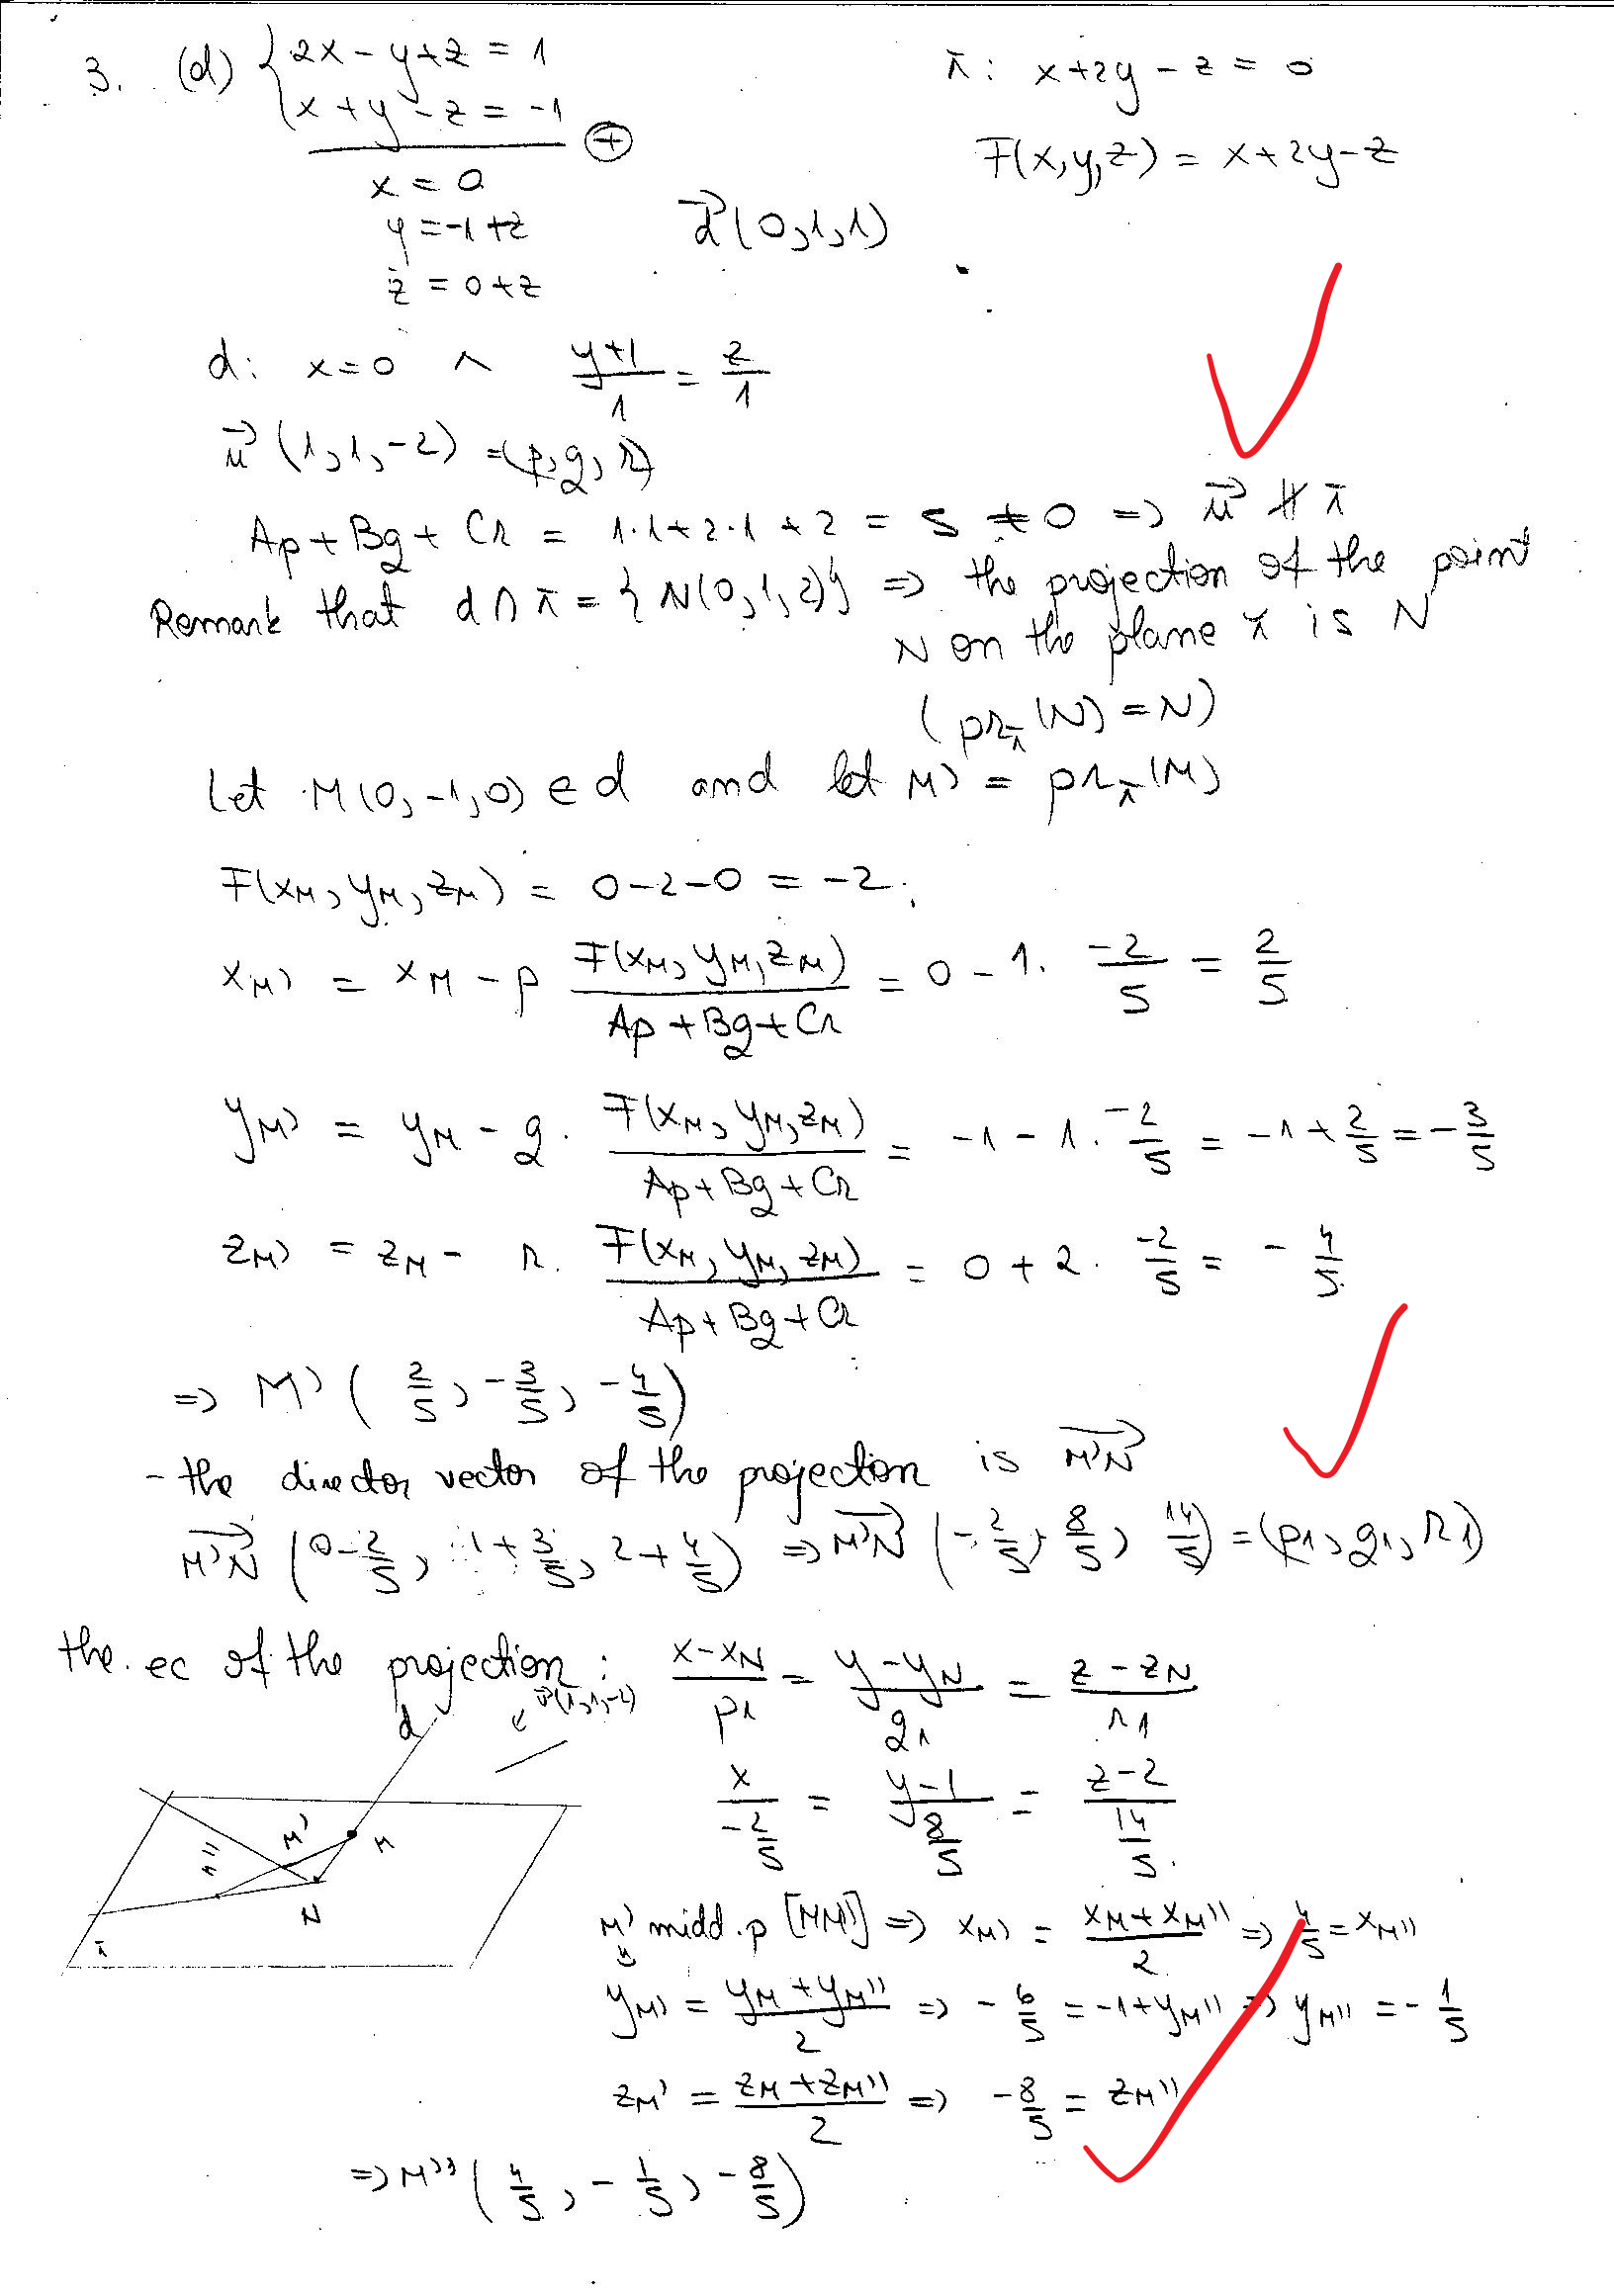 3. (d) { 2x - y + z = 1
x + y - z = -1 ⊕
π: x + 2y - z = 0
F(x,y,z) = x + 2y - z
x = 0
y = -1 + z
z = 0 + z
d⃗ (0,1,1)
d: x = 0 ∧ (y+1)/1 = z/1
u⃗ (1,1,-2) = (p,q,r)
Ap + Bq + Cr = 1·1 + 2·1 + 2 = 5 ≠ 0 => u⃗ ∦ π
Remark that d ∩ π = {N(0,1,2)} => the projection of the point
N on the plane π is N
(pr_π (N) = N)
Let M(0,-1,0) ∈ d and let M' = pr_π (M)
F(x_M, y_M, z_M) = 0 - 2 - 0 = -2.
x_M' = x_M - p F(x_M, y_M, z_M)/(Ap + Bq + Cr) = 0 - 1 · -2/5 = 2/5
y_M' = y_M - q · F(x_M, y_M, z_M)/(Ap + Bq + Cr) = -1 - 1 · -2/5 = -1 + 2/5 = -3/5
z_M' = z_M - r · F(x_M, y_M, z_M)/(Ap + Bq + Cr) = 0 + 2 · -2/5 = -4/5
=> M' (2/5, -3/5, -4/5)
- the director vector of the projection is M'N⃗
M'N⃗ (0 - 2/5, 1 + 3/5, 2 + 4/5) => M'N⃗ (-2/5, 8/5, 14/5) = (p1, q1, r1)
the ec of the projection: (x - x_N)/p1 = (y - y_N)/q1 = (z - z_N)/r1
d v⃗(1,1,-2)
x/(-2/5) = (y-1)/(8/5) = (z-2)/(14/5)
M' M
M''
N
π
M' midd.p [MM''] => x_M' = (x_M + x_M'')/2 => 4/5 = x_M''
y_M' = (y_M + y_M'')/2 => -6/5 = -1 + y_M'' => y_M'' = -1/5
z_M' = (z_M + z_M'')/2 => -8/5 = z_M''
=> M'' (4/5, -1/5, -8/5)